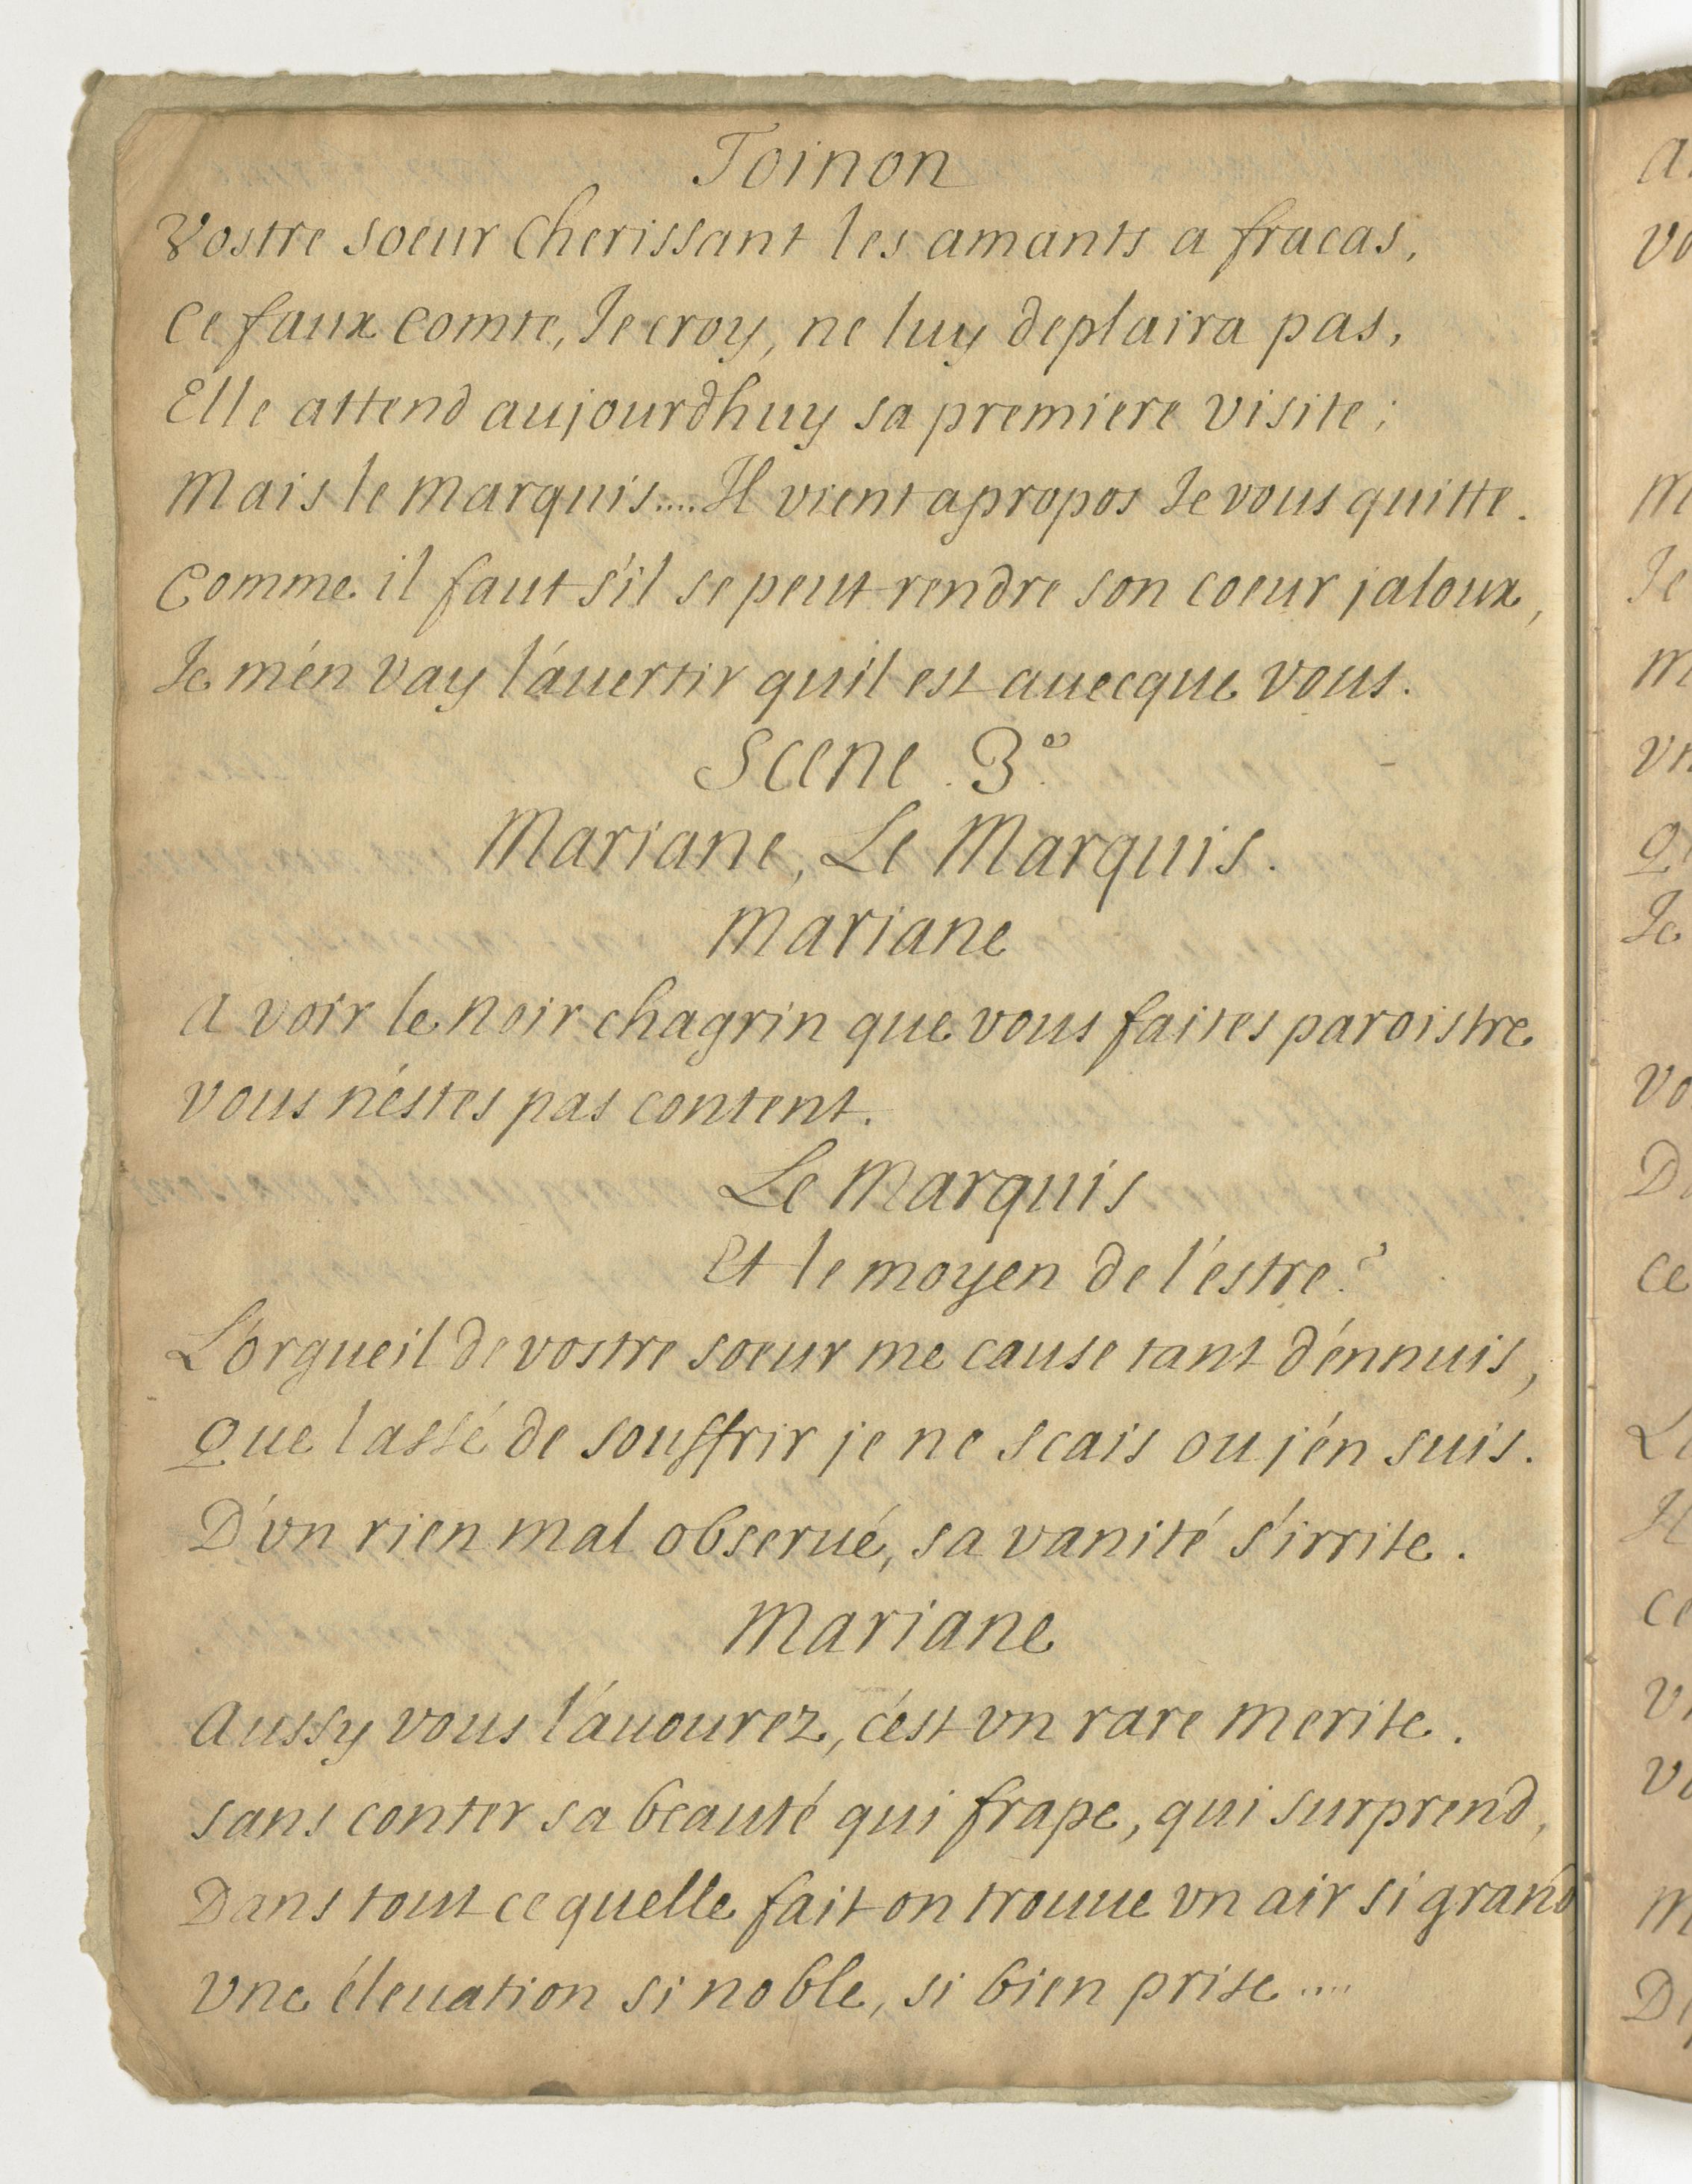 Toinon
Vostre soeur cherissant les amants a fracas,
Ce faux comte, Je croy, ne luy deplaira pas,
Elle attend aujourdhuy sa premiere visite;
Mais le Marquis.... Il vient apropos Je vous quitte.
Comme il faut s'il se peut rendre son coeur jaloux,
Je m'en vay l'auertir quil est auecque vous.
Scene 3e.
Mariane, Le Marquis.
Mariane
A voir le noir chagrin que vous faites paroistre
vous n'estes pas content.
Le Marquis
Et le moyen de l'estre?
L'orgueil de vostre soeur me cause tant d'ennuis,
Que lassé de souffrir je ne scais ou j'en suis.
D'vn rien mal obserué, sa vanité s'irrite.
Mariane
Aussy vous l'auourez, c'est vn rare merite.
sans conter sa beauté qui frape, qui surprend,
Dans tout ce quelle fait on trouue vn air si grand
vne éleuation si noble, si bien prise....